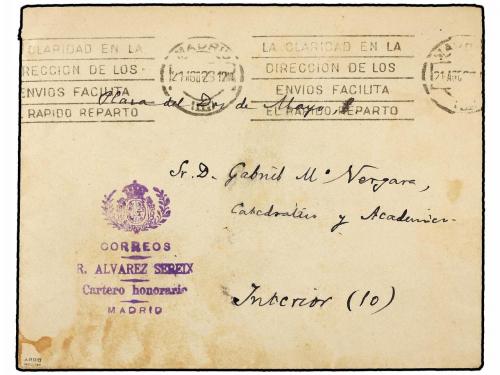 LA CLARIDAD EN LA
DIRECCION DE LOS
ENVIOS FACILITA
EL RAPIDO REPARTO
MADRID
21 AGO 23 12M
LA CLARIDAD EN LA
DIRECCION DE LOS
ENVIOS FACILITA
EL RAPIDO REPARTO
21 AGO
Plaza del Dos de Mayo,
Sr. D. Gabriel Mª Vergara,
Catedrático y Académico
Interior (10)
CORREOS
R. ALVAREZ SEREIX
Cartero honorario
MADRID